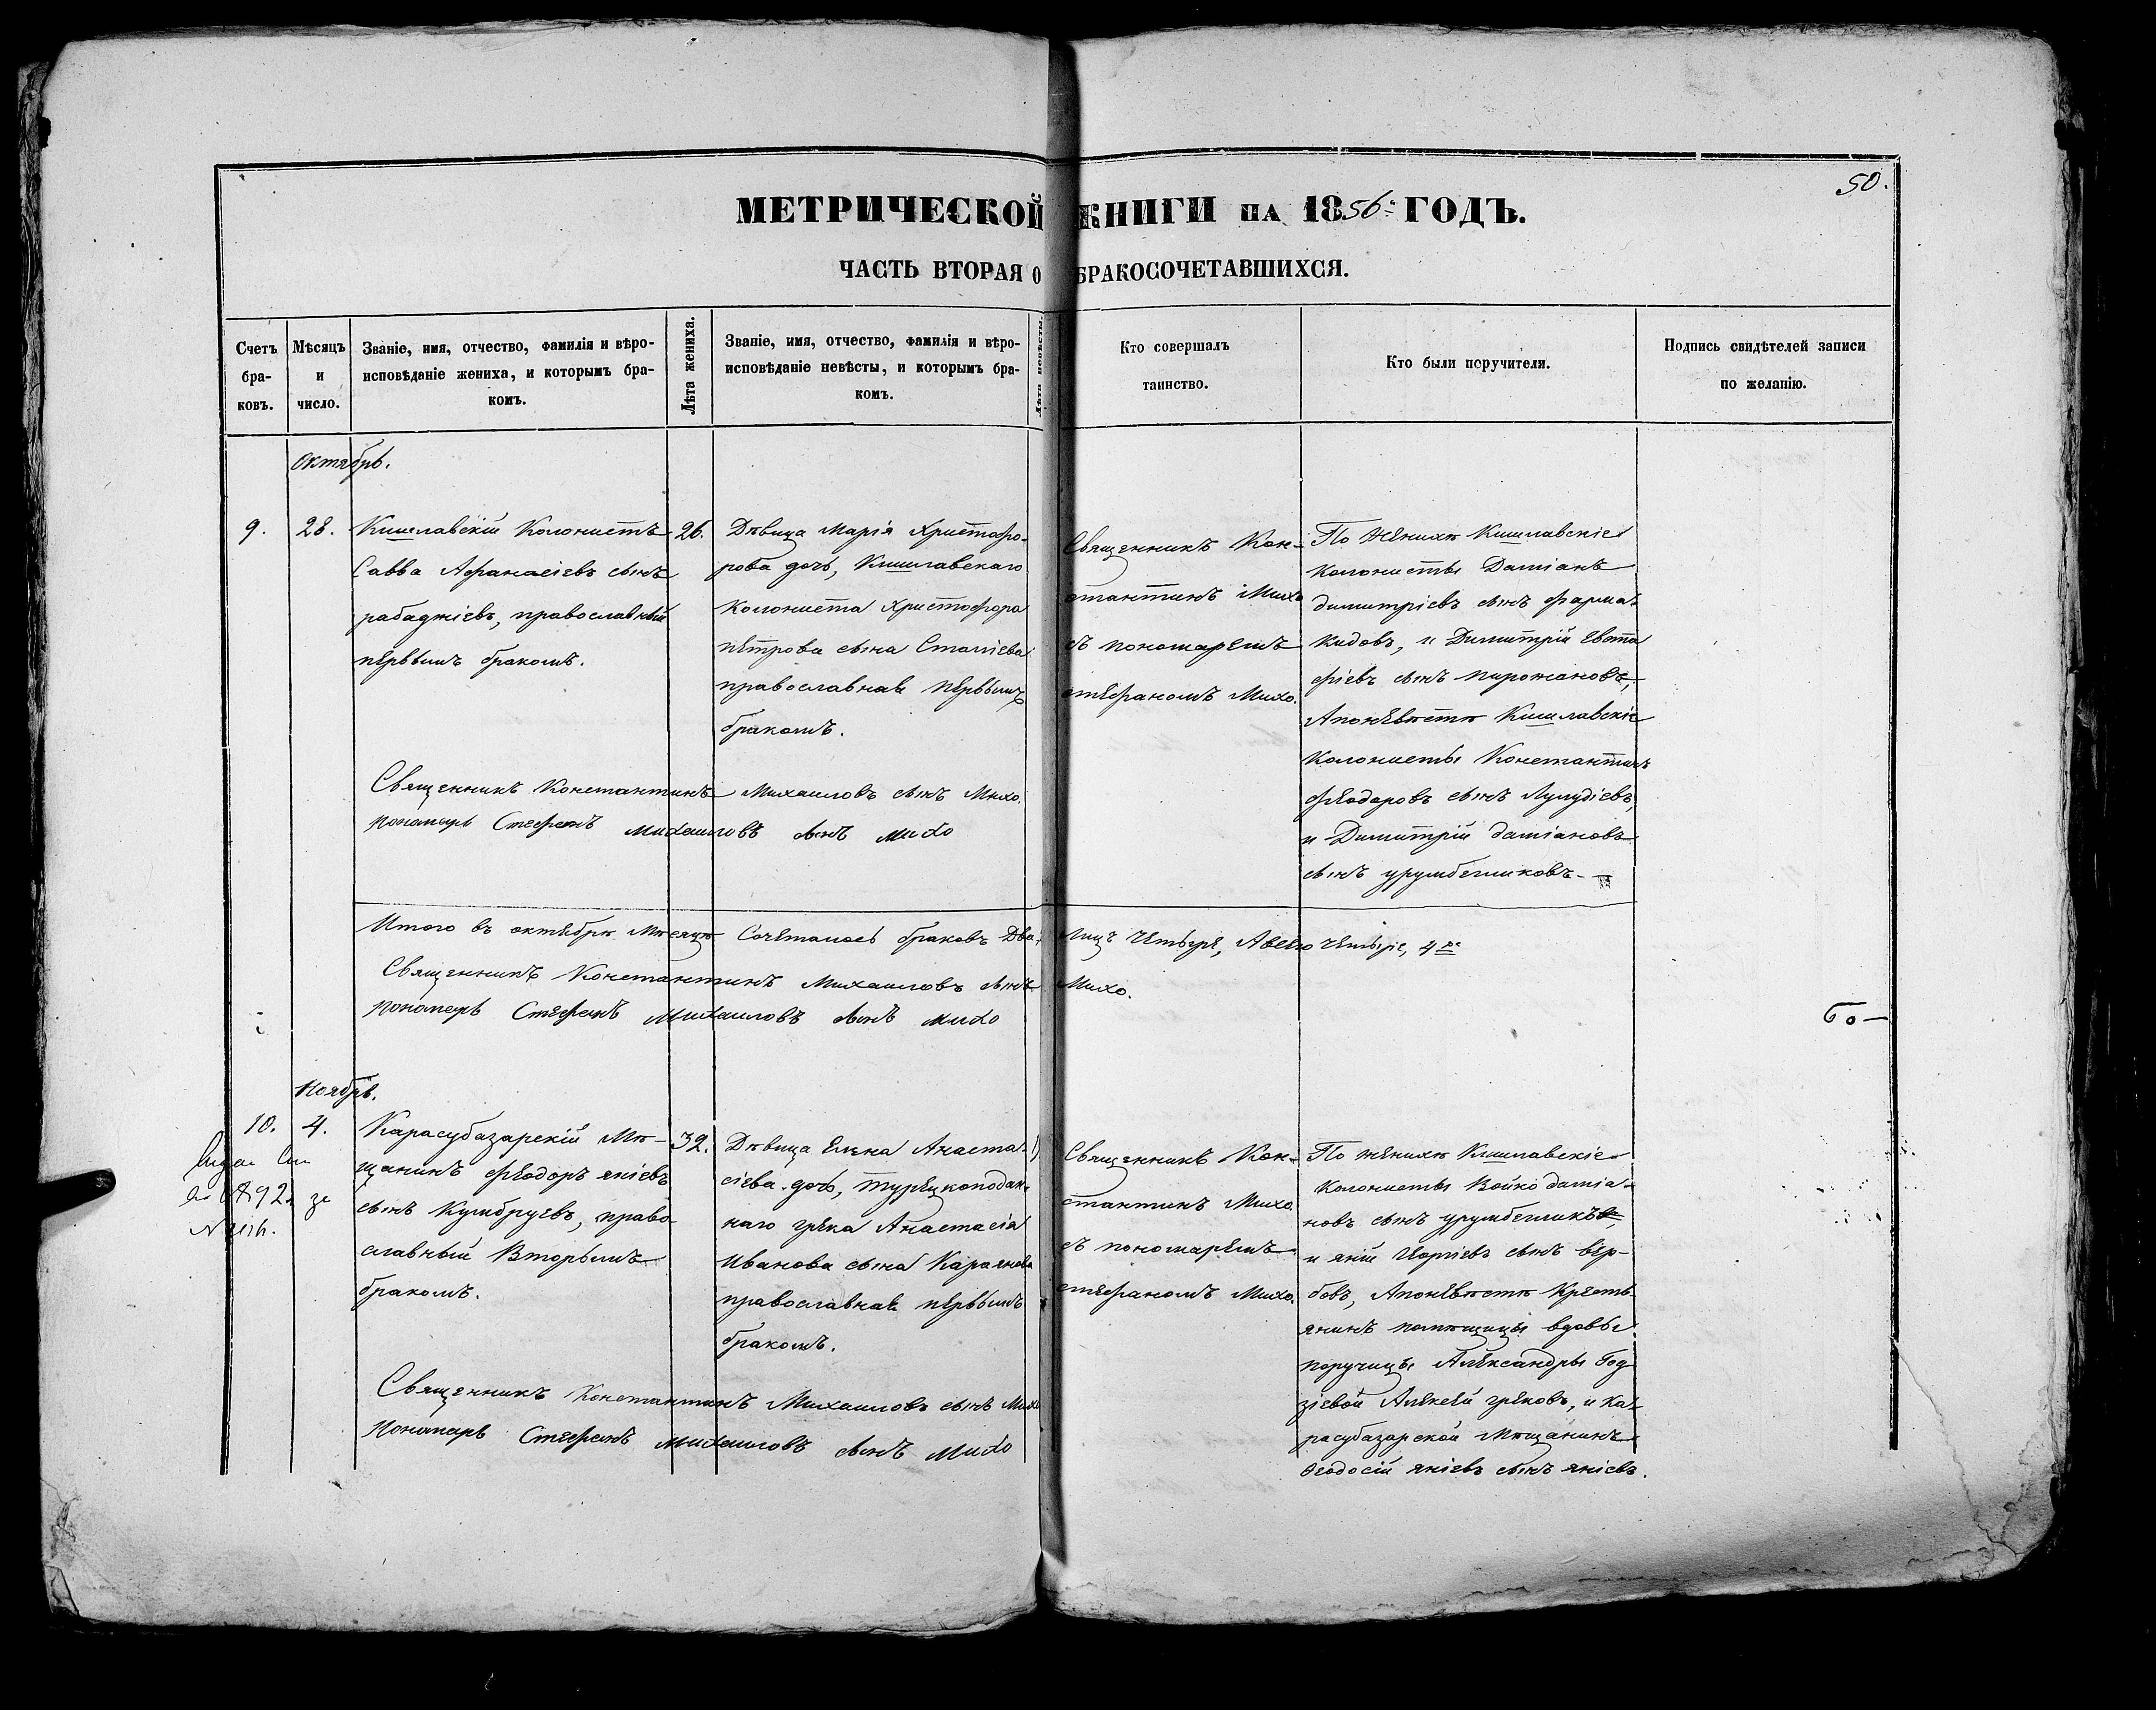 50.
МЕТРИЧЕСКОЙ КНИГИ НА 1856. ГОДЪ.
ЧАСТЬ ВТОРАЯ О БРАКОСОЧЕТАВШИХСЯ.
Счетъ бра-
ковъ.
Мѣсяцъ
и
число.
Званіе, имя, отчество, фамилія и вѣро-
исповѣданіе жениха, и которымъ бра-
комъ.
Лѣта жениха.
Званіе, имя, отчество, фамилія и вѣро-
исповѣданіе невѣсты, и которымъ бра-
комъ.
Лѣта невѣсты.
Кто совершалъ
таинство.
Кто были поручители.
Подпись свидѣтелей записи
по желанію.
Октябрь.
9.
28.
Кишлавскій Колонистъ
Савва Афанасіевъ сынъ
рабаджіевъ, православный
первымъ бракомъ.
26.
Дѣвица Марія Христофо-
рова дочь, Кишлавскаго
Колониста Христофора
петрова сына Сталіева
православная первымъ
бракомъ.
Священникъ Кон-
стантинъ Михо
съ пономаремъ
стефаномъ Михо.
По женихѣ Кишлавскіе
Колонисты Даміанъ
димитріевъ сынъ фарма-
кидовъ, и Димитрій Евста
фіевъ сынъ пирожановъ,
Апоневѣстѣ Кишлавскіе
Колонисты Константинъ
феодоровъ сынъ Лулудіевъ
и Димитрій даміановъ
сынъ урумбегликовъ.
Священникъ Константинъ Михаиловъ сынъ Михо.
Пономарь Стефанъ Михаиловъ сынъ Михо
Итого въ октябрѣ Мѣсяцѣ Сочеталось браковъ Два, Лицъ четыре, Авсего четыре, 4ре
Священникъ Константинъ Михаиловъ сынъ Михо.
Пономарь Стефанъ Михаиловъ сынъ Михо
Бо—
Ноябрь.
10.
4.
Карасубазарскій Мѣ-
щанинъ феодоръ яніевъ
сынъ Кумбруевъ, право
славный Вторымъ
бракомъ.
32.
Дѣвица Елена Анаста-
сіева дочь, турецкоподан-
наго грека Анастасія
Иванова сына Караянова
православная первымъ
бракомъ.
Священникъ Кон-
стантинъ Михо
съ пономаремъ
стефаномъ Михо.
По женихѣ Кишлавскіе
Колонисты Войко даміа-
новъ сынъ урумбегликъ
и яній Георгіевъ сынъ вер-
бовъ, Апоневѣстѣ Кресть-
янинъ помѣщицы вдовы
поручицы Александры Год
зіевой Алексей грековъ, и Ка-
расубазарской Мѣщанинъ
Феодосій яніевъ сынъ яніевъ.
Священникъ Константинъ Михаиловъ сынъ Михо
Пономарь Стефанъ Михаиловъ сынъ Михо